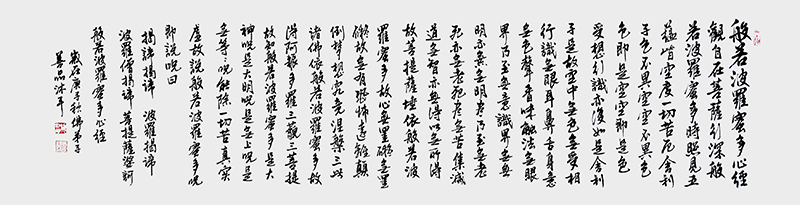 般若波羅蜜多心經
觀自在菩薩行深般
若波羅蜜多時照見五
蘊皆空度一切苦厄舍利
子色不異空空不異色
色即是空空即是色
受想行識亦復如是舍利
子是故空中無色無受想
行識無眼耳鼻舌身意
無色聲香味觸法無眼
界乃至無意識界無無
明亦無無明盡乃至無老
死亦無老死盡無苦集滅
道無智亦無得以無所得
故菩提薩埵依般若波
羅蜜多故心無罣礙無罣
礙故無有恐怖遠離顛
倒夢想究竟涅槃三世
諸佛依般若波羅蜜多故
得阿耨多羅三藐三菩提
故知般若波羅蜜多是大
神咒是大明咒是無上咒是
無等等咒能除一切苦真實
虛故說般若波羅蜜多咒
即說咒曰
揭諦揭諦 波羅揭諦
波羅僧揭諦 菩提薩婆訶
般若波羅蜜多心經
歲在庚子秋佛弟子
善品沐手